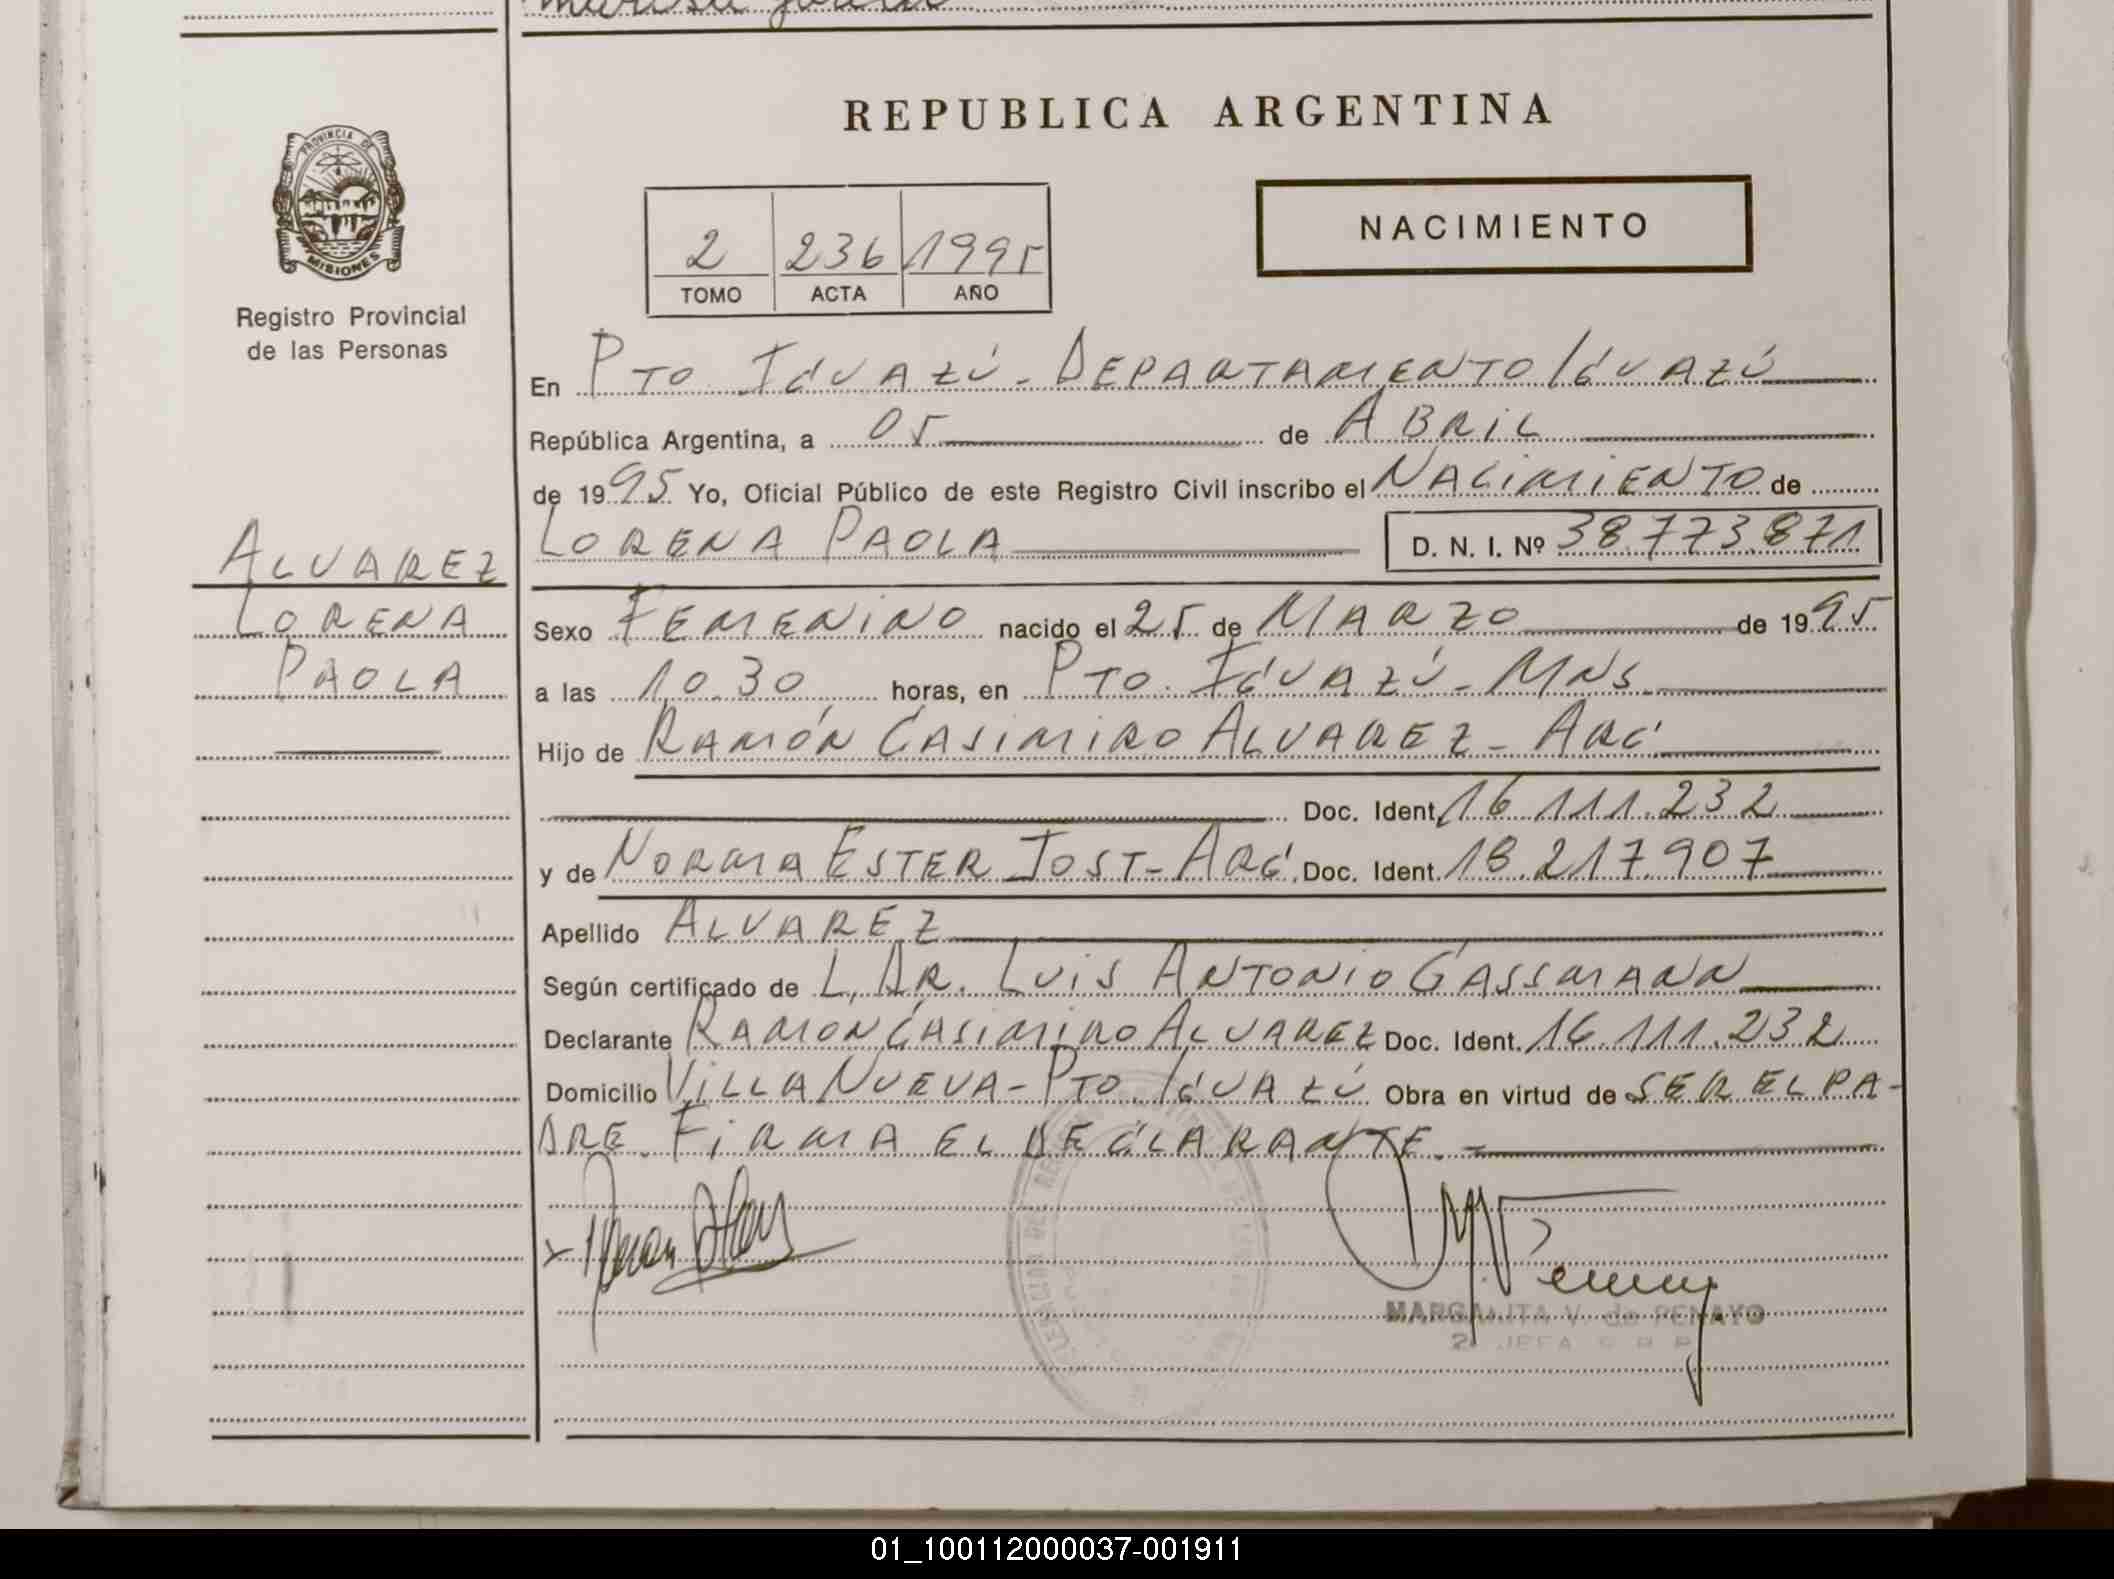 REPUBLICA ARGENTINA
PROVINCIA DE
MISIONES
Registro Provincial
de las Personas
NACIMIENTO
2 236 1995
TOMO ACTA AÑO
En Pto. Iguazú - Departamento Iguazú
República Argentina, a 05 de Abril
de 1995 Yo, Oficial Público de este Registro Civil inscribo el Nacimiento de
Lorena Paola D. N. I. Nº 38.773.871
Alvarez
Lorena
Paola
Sexo Femenino nacido el 25 de Marzo de 1995
a las 10.30 horas, en Pto. Iguazú - Mns.
Hijo de Ramón Casimiro Alvarez - Arg.
Doc. Ident. 16.111.232
y de Norma Ester Jost - Arg. Doc. Ident. 18.217.907
Apellido Alvarez
Según certificado de L. Dr. Luis Antonio Gassmann
Declarante Ramón Casimiro Alvarez Doc. Ident. 16.111.232
Domicilio Villa Nueva - Pto. Iguazú Obra en virtud de ser el pa-
dre. Firma el declarante. -
MARGARITA V. de PENAYO
2ª JEFA
01_100112000037-001911